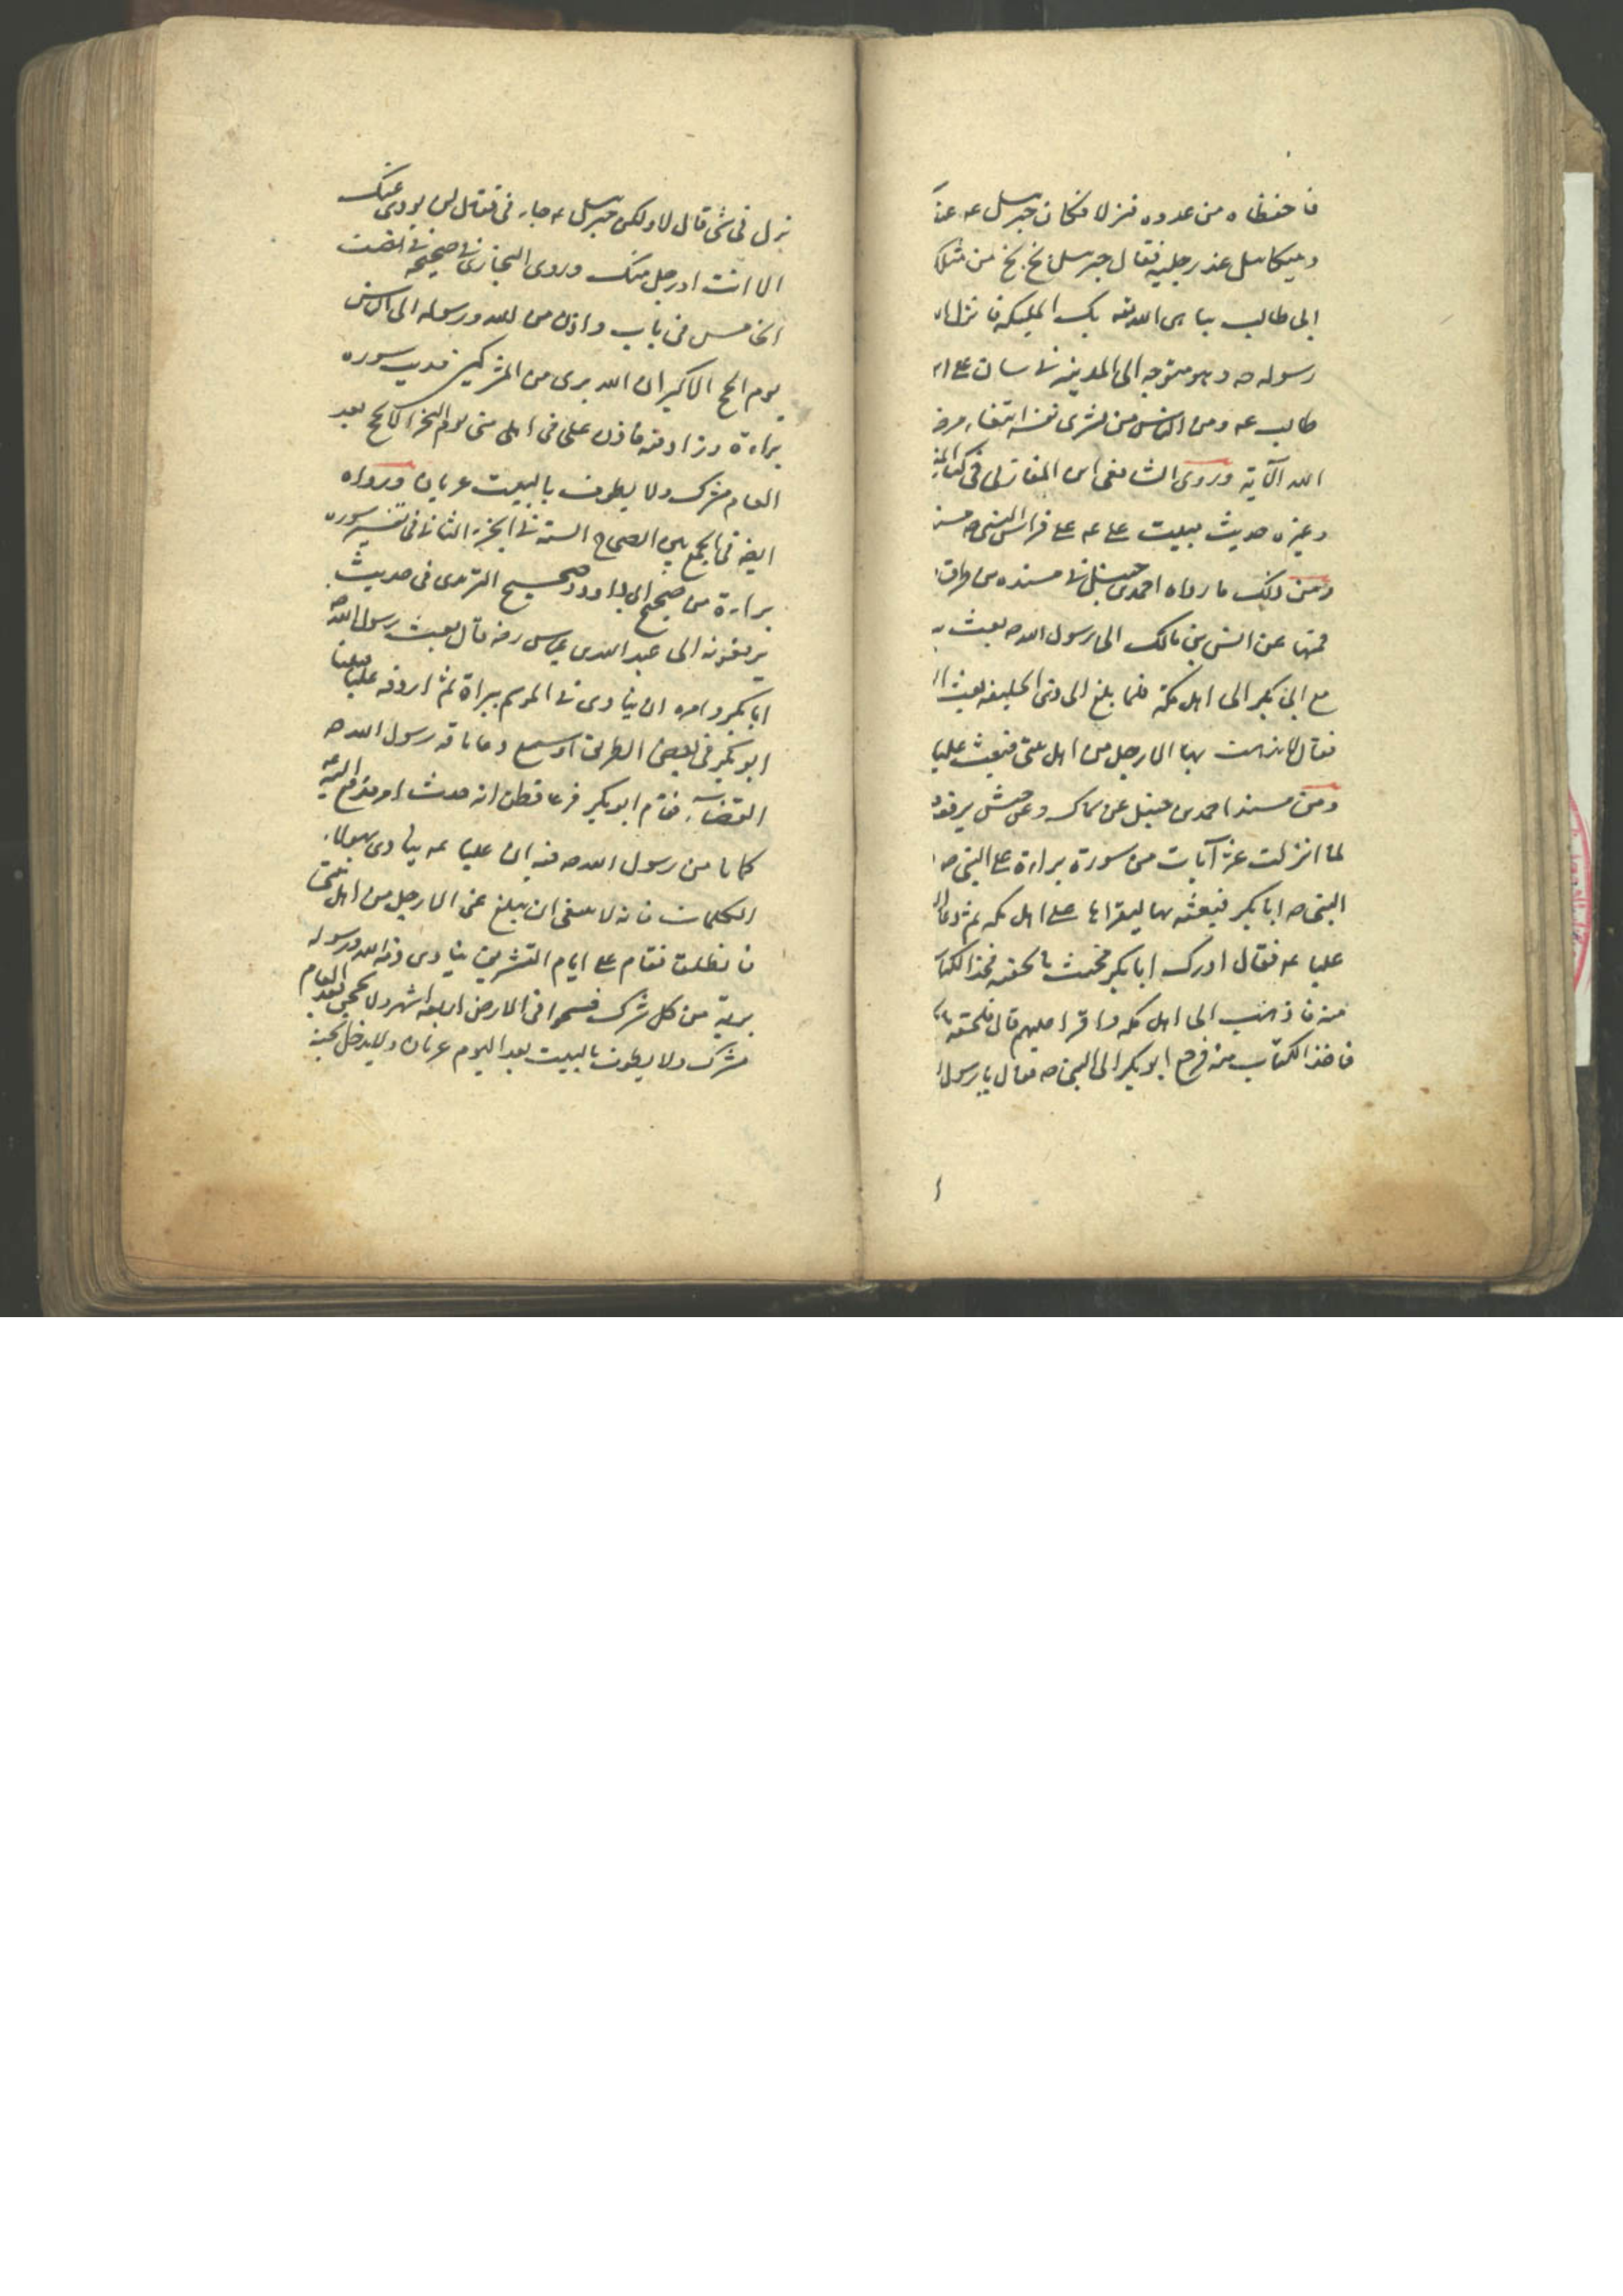 فاحفظاه من عدوه فنزلا فكان جبرسل عه عند
وميكاسل عند رجليه فقال جبرسل بخ بخ من مثلك
ابى طالب يباهى الله تعه بك المليكة فانزل الله
رسوله صه وهو متوجه الى المدينة فى شان على ابن
طالب عه ومن الناس من يشرى نفسه ابتغاء مرض
الله الآية وروى الشافعى ابن المغازلى فى كتاب
وغيره حديث مبيت على عه على فراش النبى صه
ومن ذلك ما رواه احمد بن حنبل فى مسنده من طرق
فمنها عن انس بن مالك ان رسول الله صه بعث ببر
مع ابى بكر الى اهل مكة فلما بلغ الى ذى الحليفه بعث ا
فقال لا يذهب بها الا رجل من اهل بيتى فبعث عليا
ومن مسند احمد بن حنبل عن سماك وعن حبش يرفعو
لما انزلت عشر آيات من سورة براءة على النبى صه
النبى صه ابا بكر فبعثه بها ليقراها على اهل مكه ثم دعا
عليا عه فقال ادرك ابا بكر فحيث ما لحقته فخذ الكتاب
منه فاذهب الى اهل مكه واقرا عليهم قال فلحقته
فاخذ الكتاب منه فرجع ابو بكر الى النبى صه فقال يا رسول ا
نزل فى شئ قال لا ولكن جبرسل عه جاءنى فقال لن يودى عنك
الا انت او رجل منك وروى البخارى فى صحيحه فى نصف
الخامس فى باب واذان من الله ورسوله الى الناس
يوم الحج الاكبر ان الله برى من المشركين حديث سوره
براءة وزاد فيه فاذن على فى اهل منى يوم النحر الا لا يحج بعد
العام مشرك ولا يطوف بالبيت عريان ورواه
ايضه فى الجمع بين الصحاح الستة فى الجزء الثانى فى تفسير سوره
براءة من صحيح ابى داود وصحيح الترمذى فى حديث
يرفعونه الى عبد الله بن عباس رضه قال بعث رسول الله صه
ابا بكر وامره ان ينادى فى الموسم ببراة ثم اردفه عليا فبينا
ابو بكر فى بعض الطريق اذ سمع رغا ناقة رسول الله صه
القصباء فقام ابو بكر فزعا فظن انه حدث امر فدفع اليه
كتابا من رسول الله صه فيه ان عليا عه ينادى بهولاء
الكلمات فانه لا ينبغى ان يبلغ عنى الا رجل من اهل بيتى
فانطلقا فقام على ايام التشريق ينادى ذمة الله ورسوله
برية من كل مشرك فسيحوا فى الارض اربعه اشهر ولا يحجن بعد العام
مشرك ولا يطوف بالبيت بعد اليوم عريان ولا يدخل الجنة